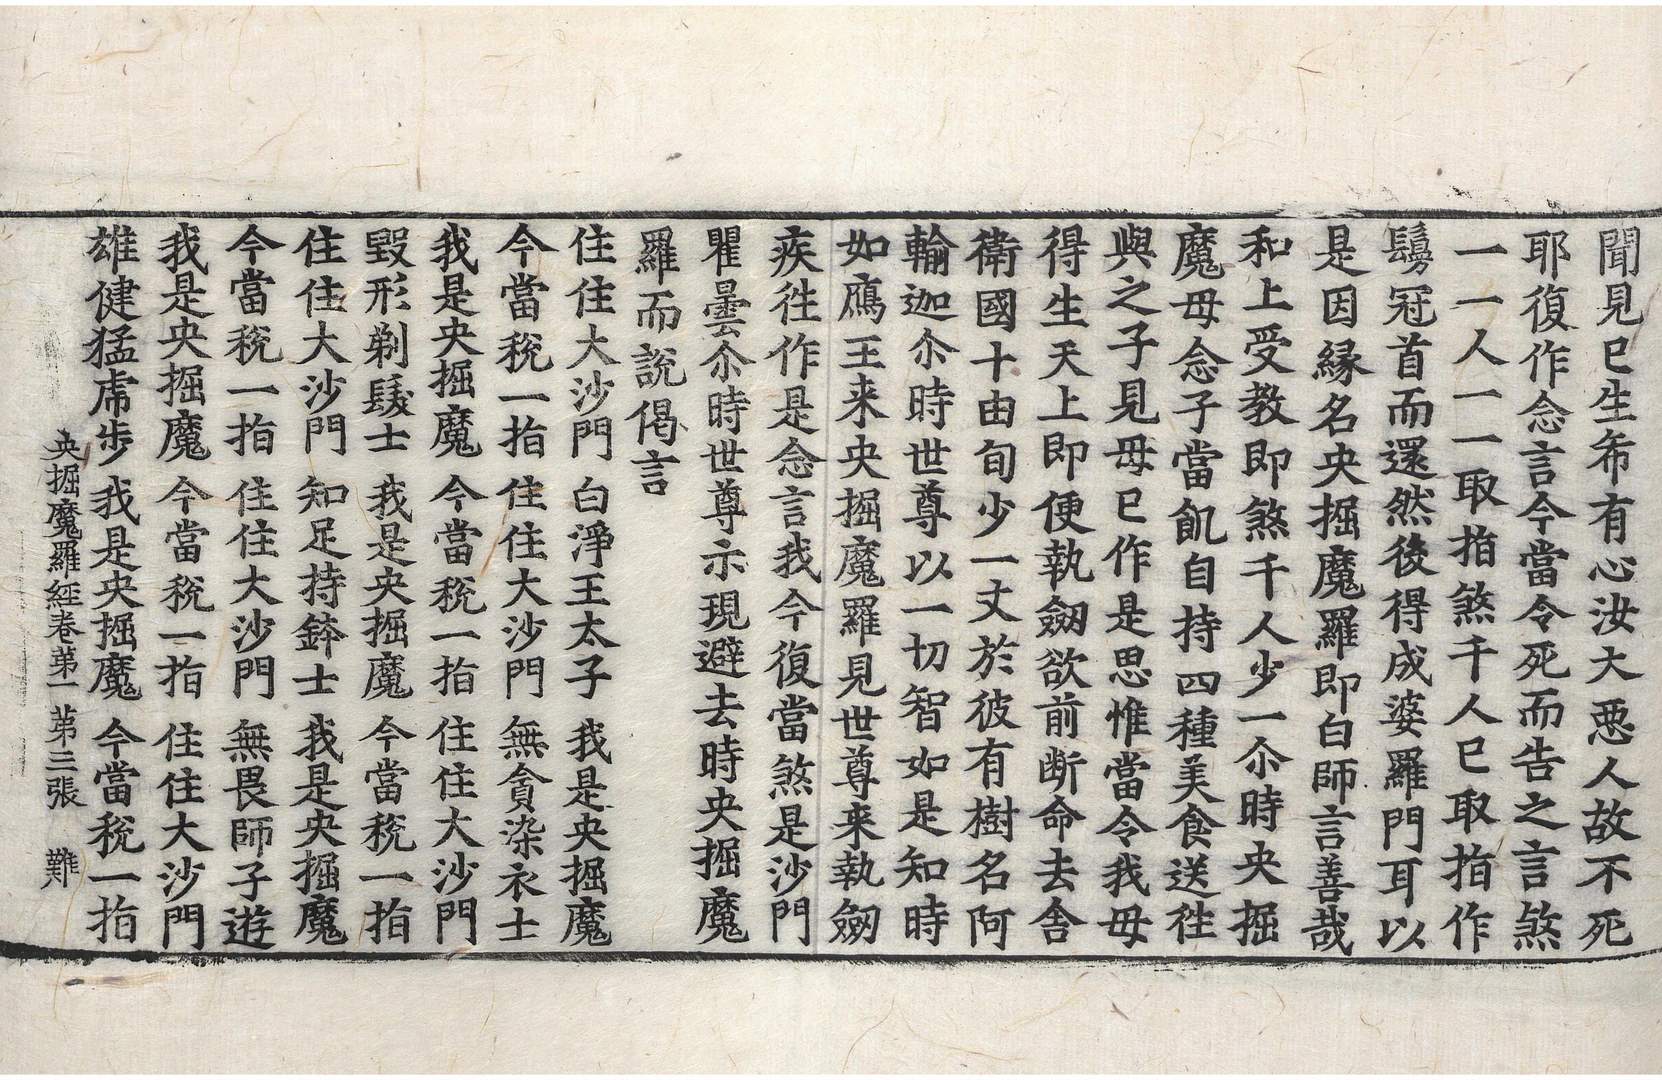 聞見已生希有心汝大恶人故不死
耶復作念言今當令死而告之言煞
一一人一一取指煞千人已取指作
鬘冠首而還然後得成婆羅門耳以
是因縁名央掘魔羅即白師言善哉
和上受教即煞千人少一尒時央掘
魔母念子當飢自持四種美食送徃
與之子見母已作是思惟當令我母
得生天上即便執劒欲前断命去舍
衛國十由旬少一丈於彼有樹名阿
輸迦尒時世尊以一切智如是知時
如鴈王来央掘魔羅見世尊来執劒
疾徃作是念言我今復當煞是沙門
瞿曇尒時世尊示現避去時央掘魔
羅而說偈言
住住大沙門　白淨王太子　我是央掘魔
今當稅一指　住住大沙門　無貪染衣士
我是央掘魔　今當稅一指　住住大沙門
毀形剃髮士　我是央掘魔　今當稅一指
住住大沙門　知足持鉢士　我是央掘魔
今當稅一指　住住大沙門　無畏師子遊
我是央掘魔　今當稅一指　住住大沙門
雄健猛虎步　我是央掘魔　今當稅一指
央掘魔羅經卷苐一　苐三張　難